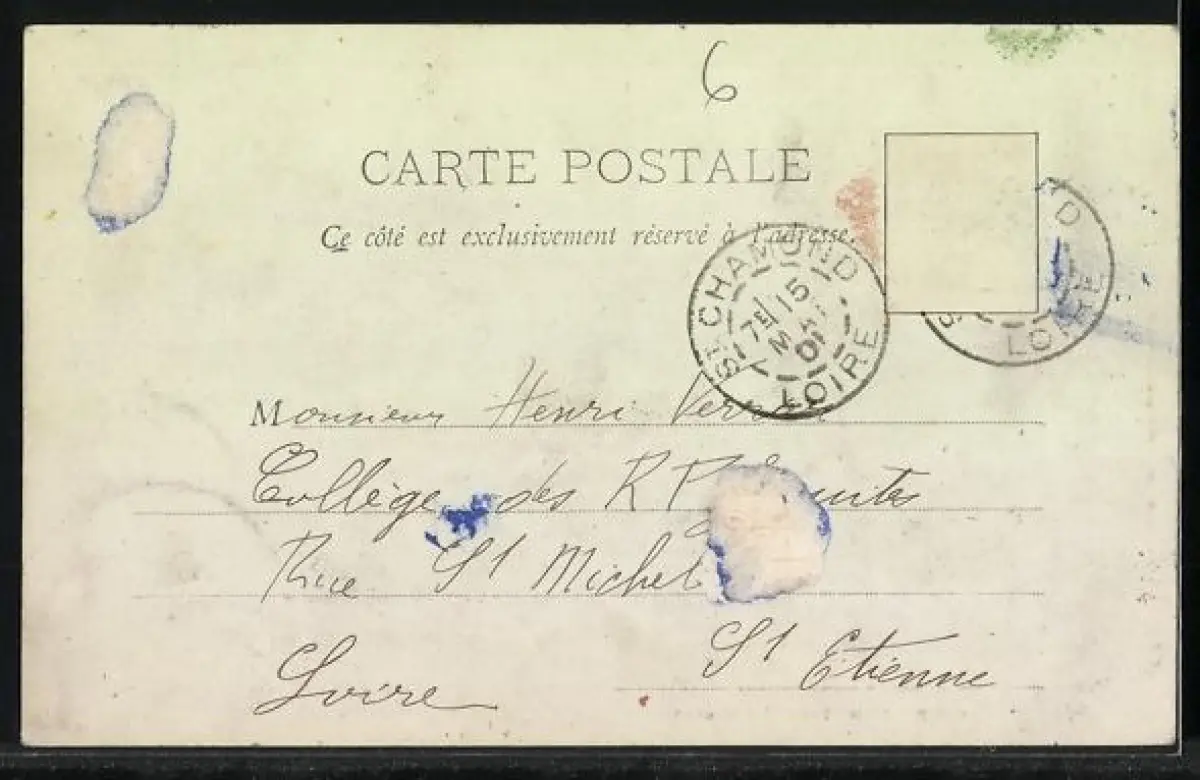 6
CARTE POSTALE
Ce côté est exclusivement réservé à l'adresse.
ST CHAMOND
7E 15
MAI
01
LOIRE
D
LOIRE
Monsieur Henri
Collège des R P
Rue St Michel
St Etienne
Loire